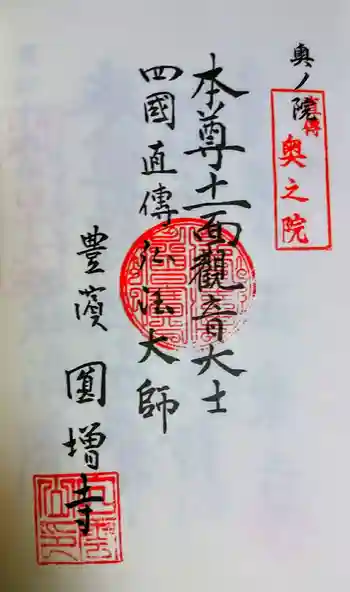 奥ノ院
直傳
奥之院
本尊十一面觀音大士
四國直傳弘法大師
豊濱
圓增寺